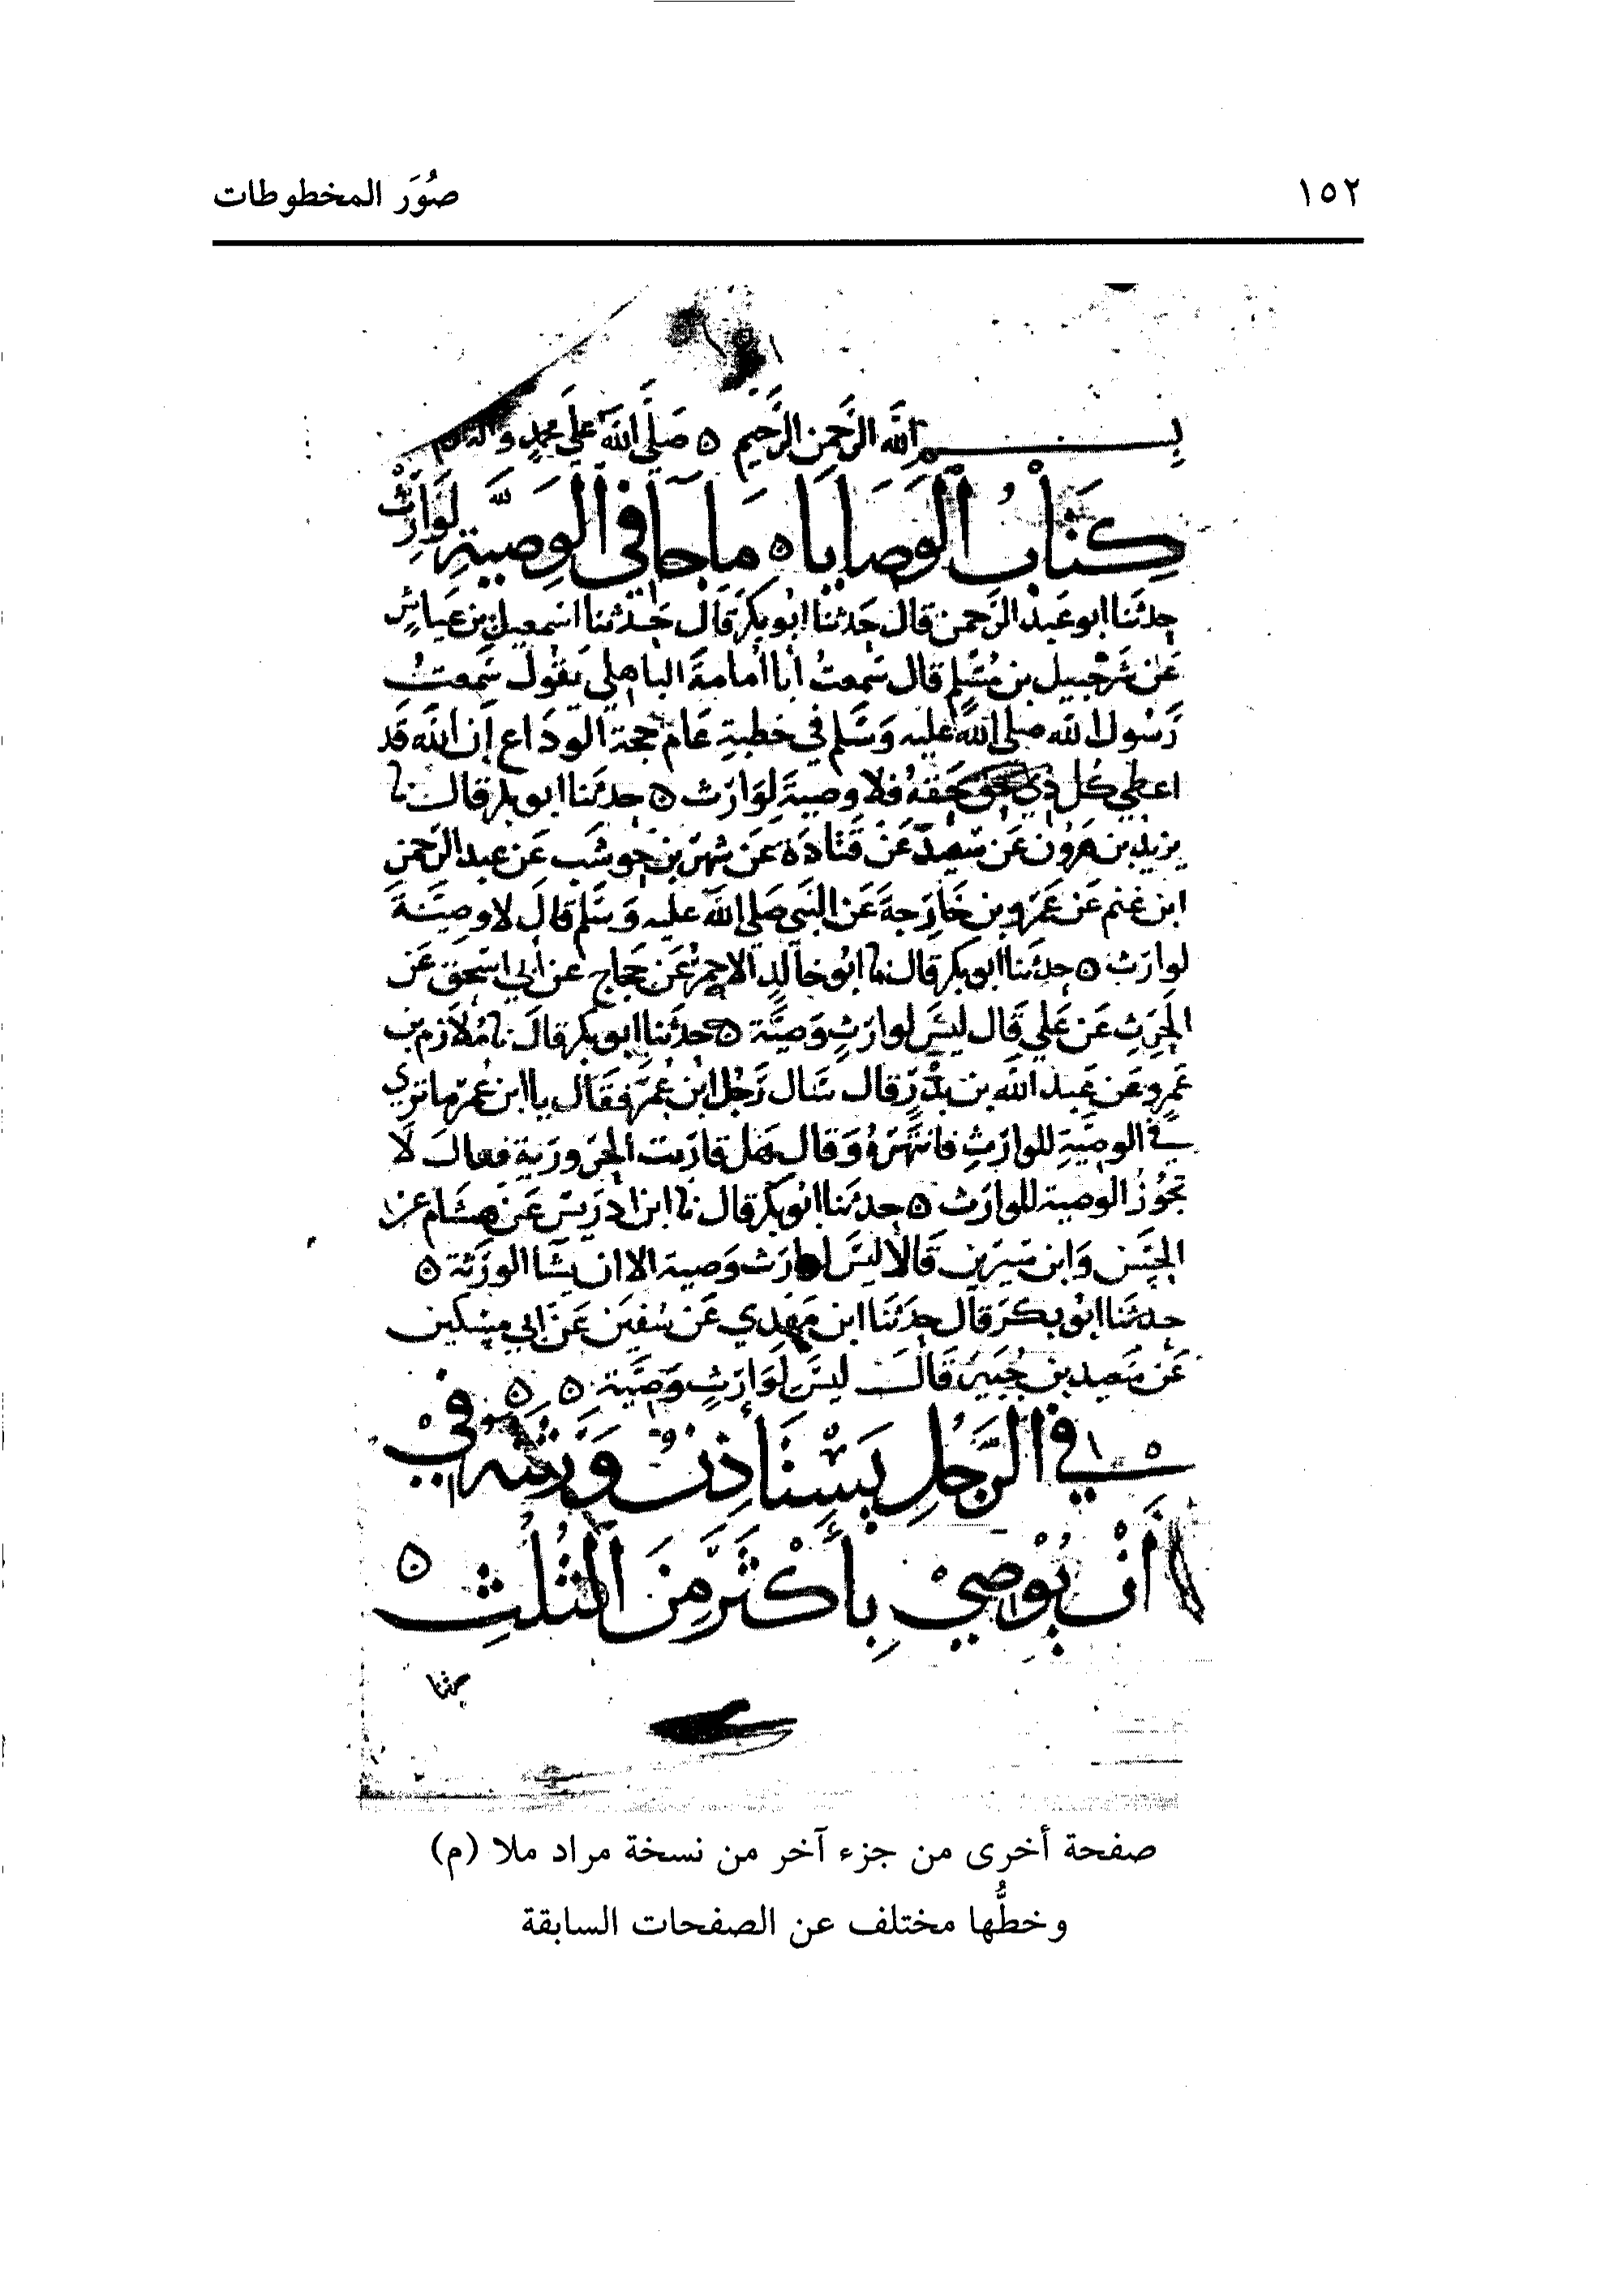 ١٥٢
صُوَر المخطوطات
بسم الله الرحمن الرحيم ه صَلَّى الله عَلَى محمدٍ وآله
كِتَابُ الوَصَايَا ه مَا جَآ في الوَصِيَّةِ لِوَارِثٍ
حدثنا ابو عَبد الرَّحمن قال حَدثنا ابُو بَكر قَال حَدثنا اسمعيل بن عَياشٍ
عَن شرَحبيل بن مُسْلِمٍ قال سَمعتُ أبا أمامةَ الباهلي يَقول سَمِعتُ
رَسُول الله صلى الله عليه وَسَلم في خطبتِه عَام حجة الودَاع إن الله قَد
اعطي كُل ذي حَق حَقهُ فلا وصيةَ لِوَارث ه حدثَنا ابو بكر قال نا
يزيد بن هرُون عَن سَعيد عَنْ قَتادَة عَن شهر بن حَوشَب عَن عبد الرحمن
ابن غنم عَن عَمرو بن خَارجةَ عَن النَّبي صَلى الله عليه وَسَلم قالَ لا وصيَّةَ
لوارث ه حدثَنا ابو بكر قال نا ابُو خالدٍ الاحمرُ عَن حَجاج عن أبي اسحق عَن
الحرثِ عَن عَلي قَال ليسَ لوارثٍ وَصيَّة ه حدثَنا ابو بكر قالَ نا مُلازم بن
عَمرٍو عَن عَبد الله بن بَدْرٍ قال سَال رَجُل ابْن عُمَر فقَال يا ابن عُمَر ما تري
في الوصيَّةِ للوارثِ فانتَهَرَهُ وَقال هَل قارَبت الحَروريةِ فقال لَا
تجُوزُ الوصية للوارث ه حدثَنا ابُو بَكر قال نا ابن ادريسَ عَن هشَام عَن
الحسَن وَابن سيرين قَالَا ليسَ لوارث وَصية الا ان يشَا الورَثة ه
حدثنا ابُو بكرَ قال حدثَنَا ابن مَهدِي عَن سُفين عَن ابي مسكين
عَن سَعيد بن جُبَيرٍ قَالَ ليسَ لِوَارثٍ وَصيَّة ه ه
في الرَّجُلِ يَسْتَأذِنُ وَرَثَتَه في
أَنْ يُوْصِيْ بِأَكْثَرَ مِنَ الثُلُثِ ه
حدثنا
صفحة أخرى من جزء آخر من نسخة مراد ملا (م)
وخطُّها مختلف عن الصفحات السابقة